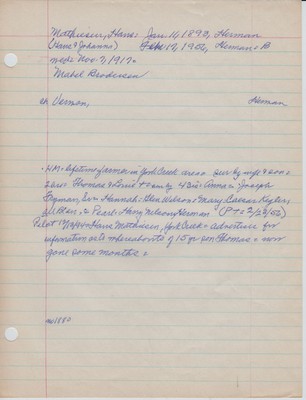 Mathiesen, Hans: Jan. 16 1892, Herman
(Hans & Johanna) Feb 17, 1952, Herman = B
med: Nov. 7, 1917 =
Mabel Brodersen
ch Vernon, Herman
HM: lifetime farmer in York Creek area = Sur by wife & son =
2 bro: Thomas & Louis + = sur by 4 sis: Anna = Joseph
Hannah: Glen Wilson = Mary: Caesar
Pearl: Harry Nelson, Herman (PT = 2/28/52)
Pilot Hans Mathiesen, York Creek = advertise for
information as to whereabouts of 15 yr son Thomas = now
gone some months =